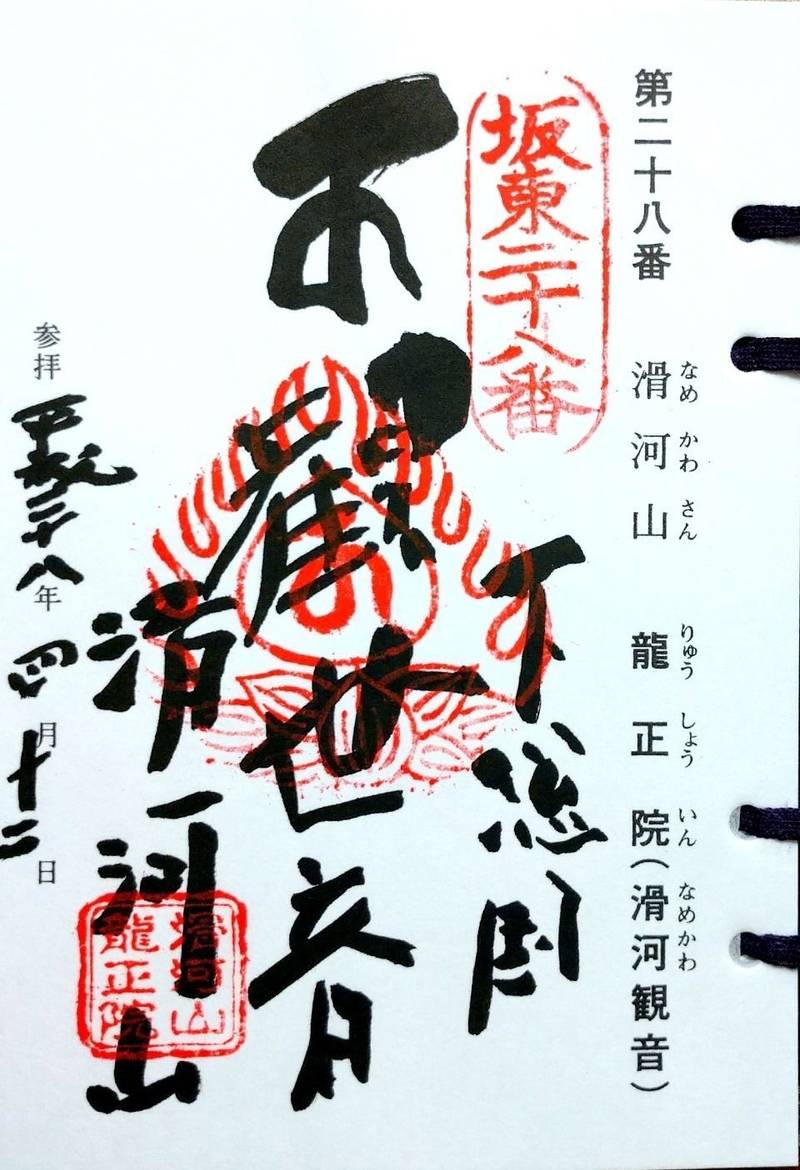 第二十八番 滑河山 龍正院（滑河観音）
なめかわさん りゅうしょういん なめかわ
坂東二十八番
下総國
聖観世音
滑河山
滑河山
龍正院
参拝 平成二十八年 四月十二日